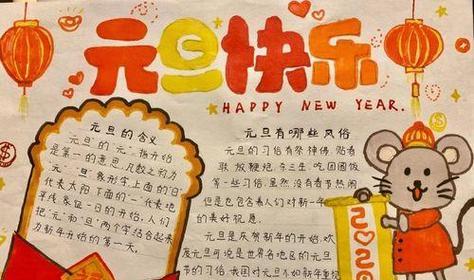 元旦快乐
HAPPY NEW YEAR.
元旦的含义
"元旦"的"元",指开始
是第一的意思,凡数之初为
"元","旦"象形字上面的"日"
代表太阳,下面的"一"代表地
平线,象征一日的开始,人们
把"元"和"旦"两个字结合起来
为新年开始的第一天。
元旦有哪些风俗
元旦的习俗有祭神佛、贴春
联、放鞭炮、杀三生、吃团圆饭
等一些习俗,虽然没有春节热闹
但是也包含着人们对新一年
的美好祝愿。
元旦是庆贺新年的开始,欢
度元旦可说是世界各地区的元旦
节的习俗,我国对元旦不如新年重视
2020